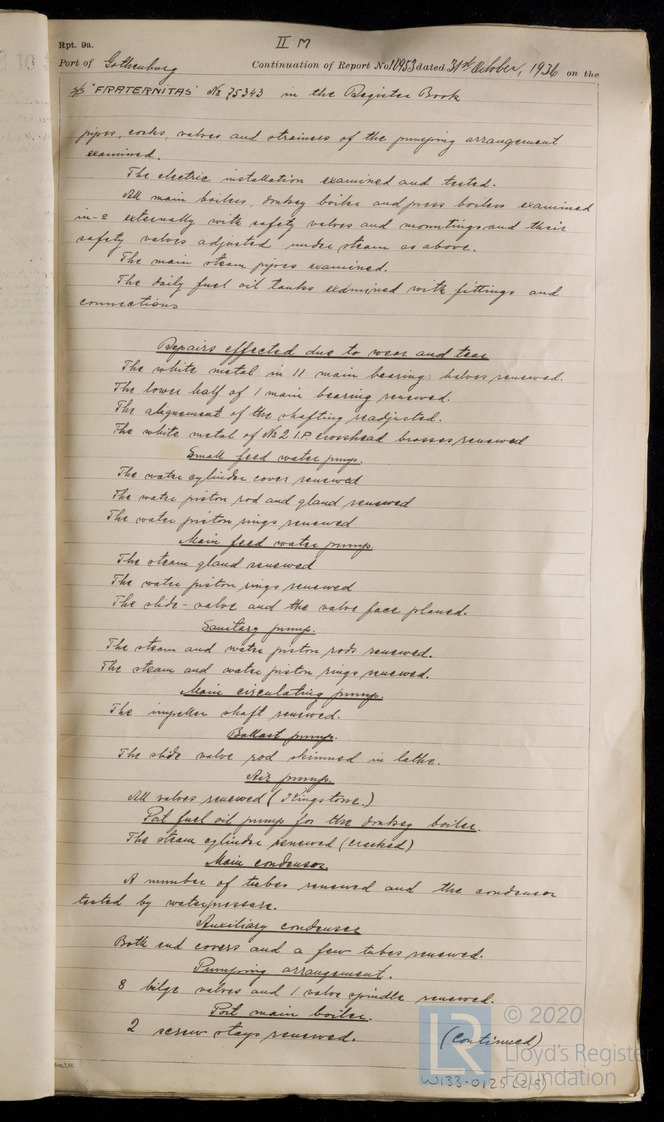 II M
Rpt. 9a.
Port of Gothenburg Continuation of Report No 10953 dated 31st October, 1936 on the
S/S "FRATERNITAS" No 75343 in the Register Book
pipes, cocks, valves and strainers of the pumping arrangement
examined.
The electric installation examined and tested.
All main boilers, donkey boiler and press boilers examined
in- & externally with safety valves and mountings and their
safety valves adjusted under steam as above.
The main steam pipes examined.
The daily fuel oil tanks examined with fittings and
connections
Repairs effected due to wear and tear
The white metal in 11 main bearing halves renewed.
The lower half of 1 main bearing renewed.
The alignement of the shafting readjusted.
The white metal of No 2 I.P. crosshead brasses renewed
Small feed water pump.
The water cylinder cover renewed
The water piston rod and gland renewed
The water piston rings renewed
Main feed water pump.
The steam gland renewed
The water piston rings renewed
The slide-valve and the valve face planed.
Sanitary pump.
The steam and water piston rods renewed.
The steam and water piston rings renewed.
Main circulating pump.
The impeller shaft renewed.
Ballast pump.
The slide valve rod skimmed in lathe.
Air pump.
All valves renewed (Kingstone.)
Port fuel oil pump for the donkey boiler.
The steam cylinder renewed (cracked)
Main condensor.
A number of tubes renewed and the condensor
tested by waterpressure.
Auxiliary condensor
Both end covers and a few tubes renewed.
Pumping arrangement.
8 bilge valves and 1 valve spindle renewed.
Port main boiler.
2 screw stays renewed. (Continued)
© 2020
LR Lloyd's Register
Foundation
W133-0125 (2/5)